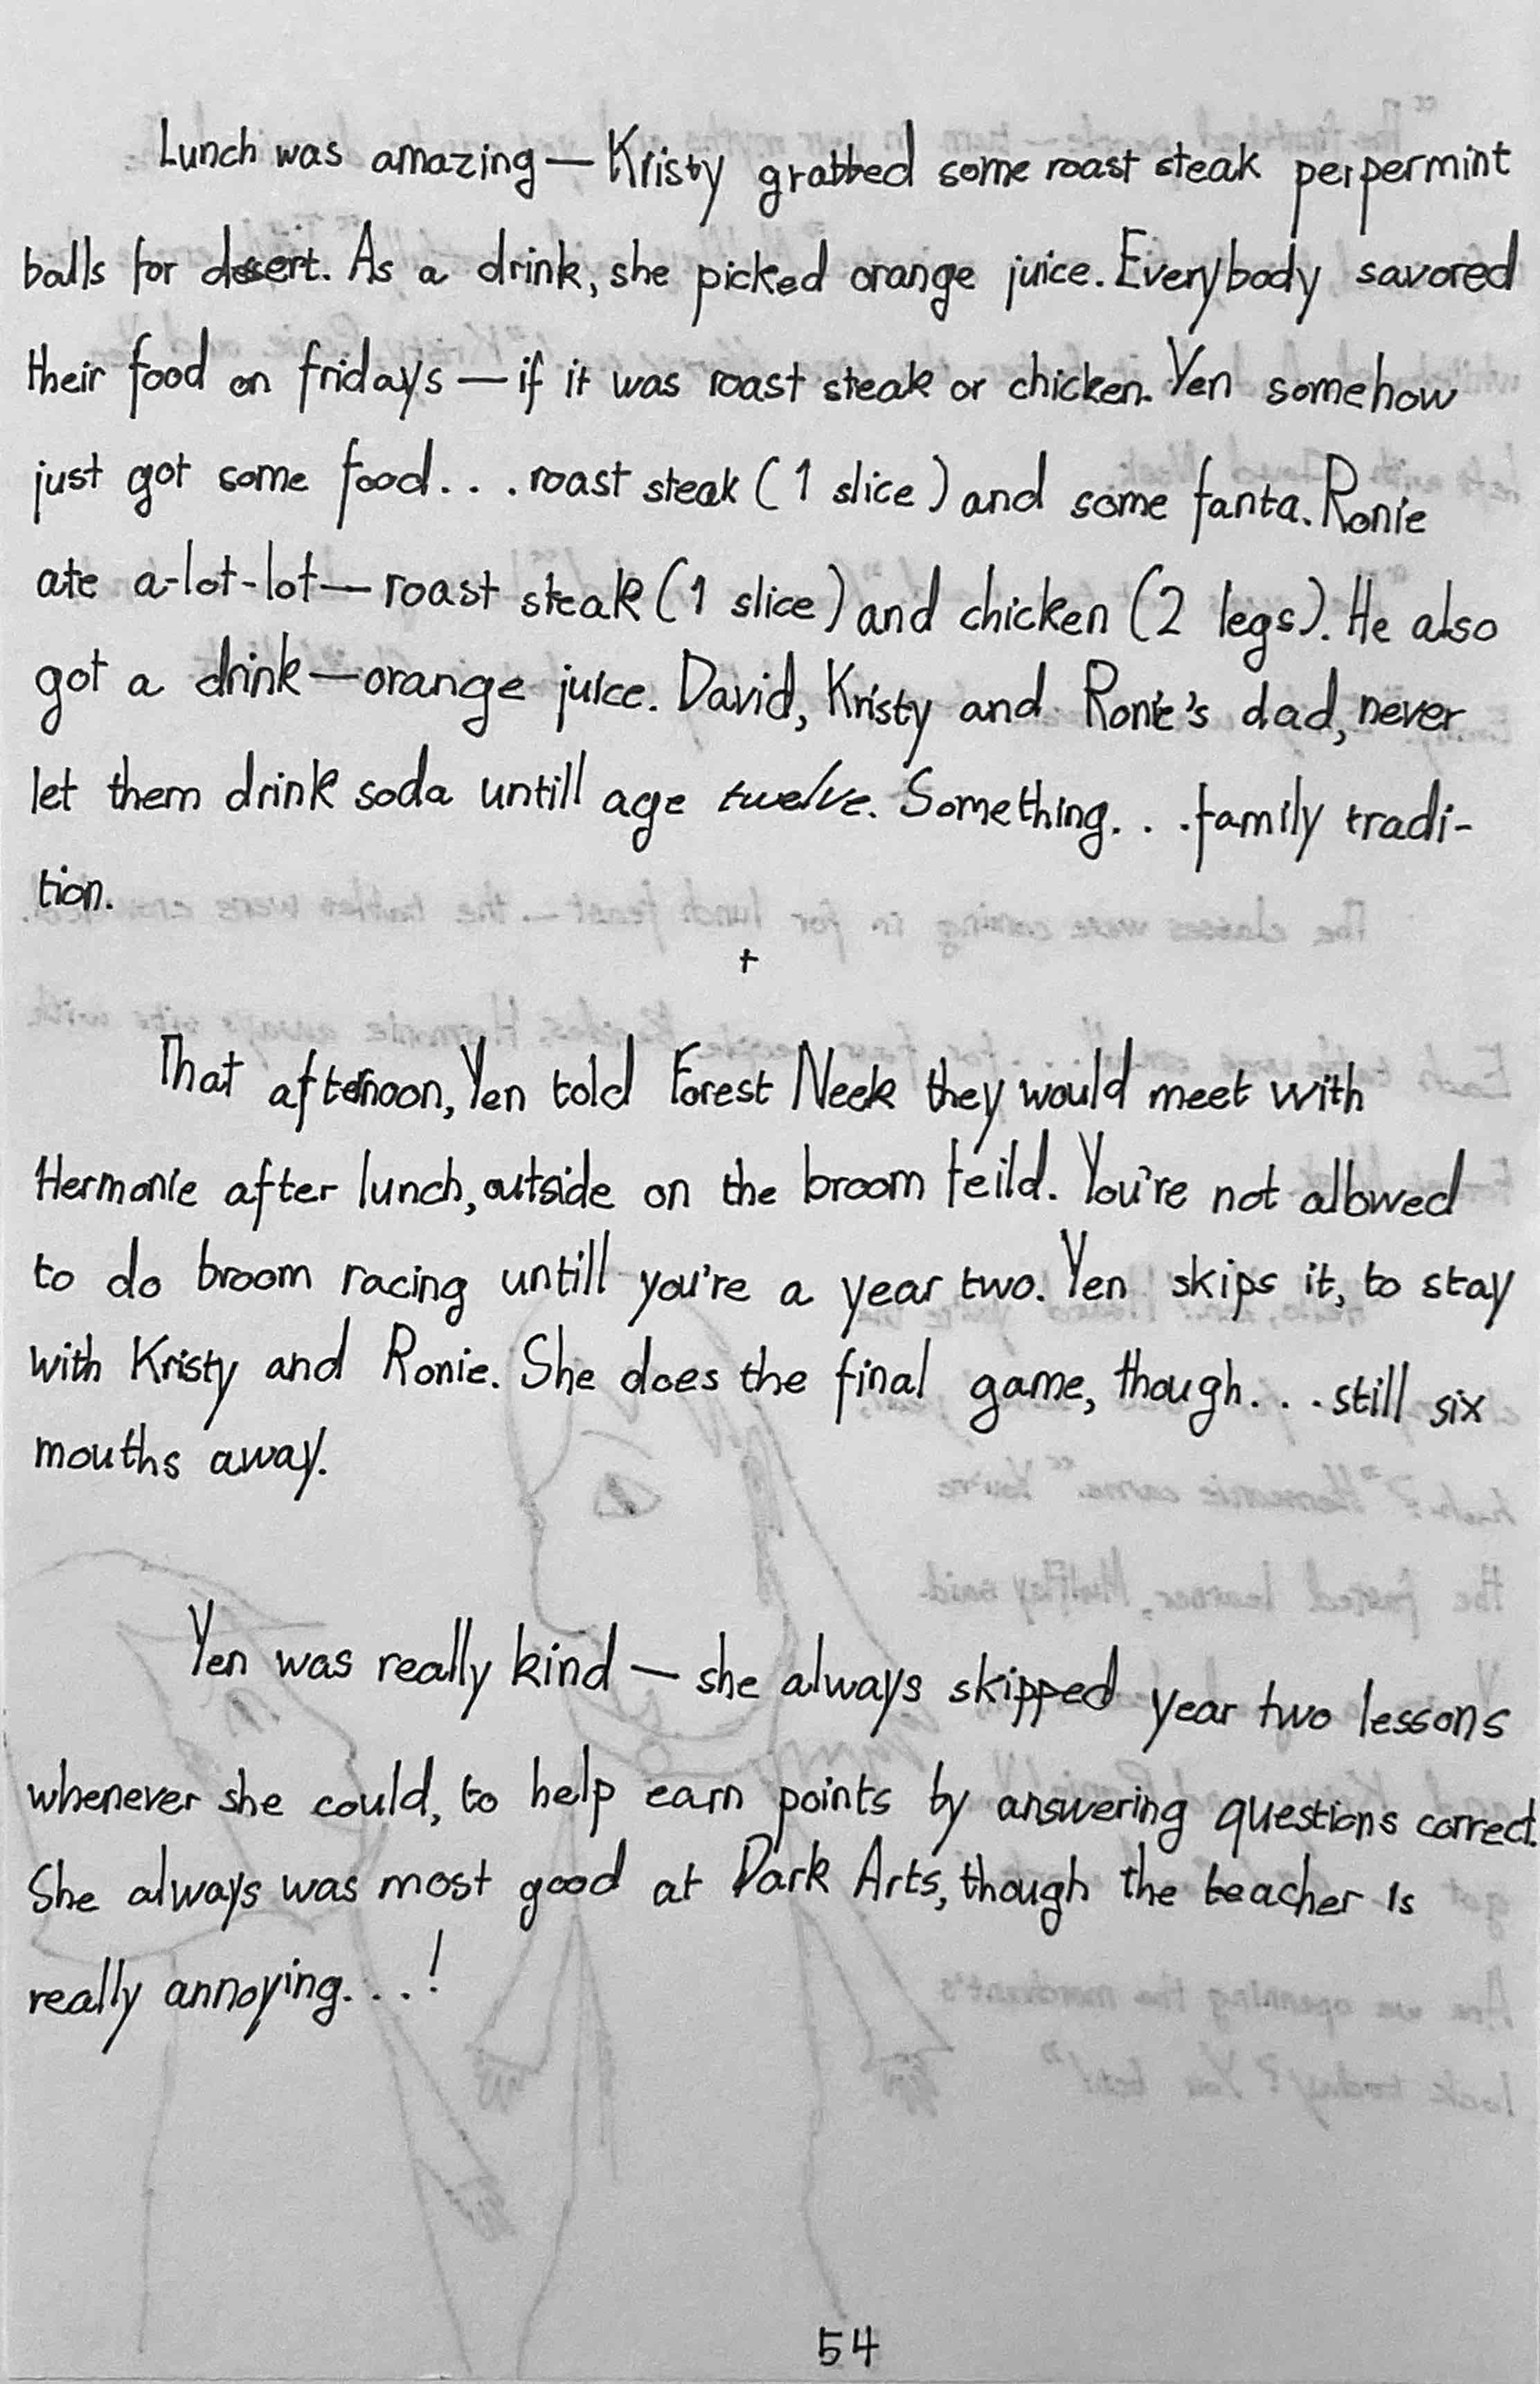 Lunch was amazing — Kristy grabbed some roast steak perpermint
balls for desert. As a drink, she picked orange juice. Everybody savored
their food on fridays — if it was roast steak or chicken. Yen somehow
just got some food. . . . roast steak (1 slice) and some fanta. Ronie
ate a-lot-lot — roast steak (1 slice) and chicken (2 legs). He also
got a drink — orange juice. David, Kristy and Ronie's dad, never
let them drink soda untill age twelve. Something. . . family tradi-
tion.
+
That afternoon, Yen told Forest Neek they would meet with
Hermonie after lunch, outside on the broom feild. You're not allowed
to do broom racing untill you're a year two. Yen skips it, to stay
with Kristy and Ronie. She does the final game, though. . . still six
mouths away.
Yen was really kind — she always skipped year two lessons
whenever she could, to help earn points by answering questions correct.
She always was most good at Dark Arts, though the teacher is
really annoying. . . !
54